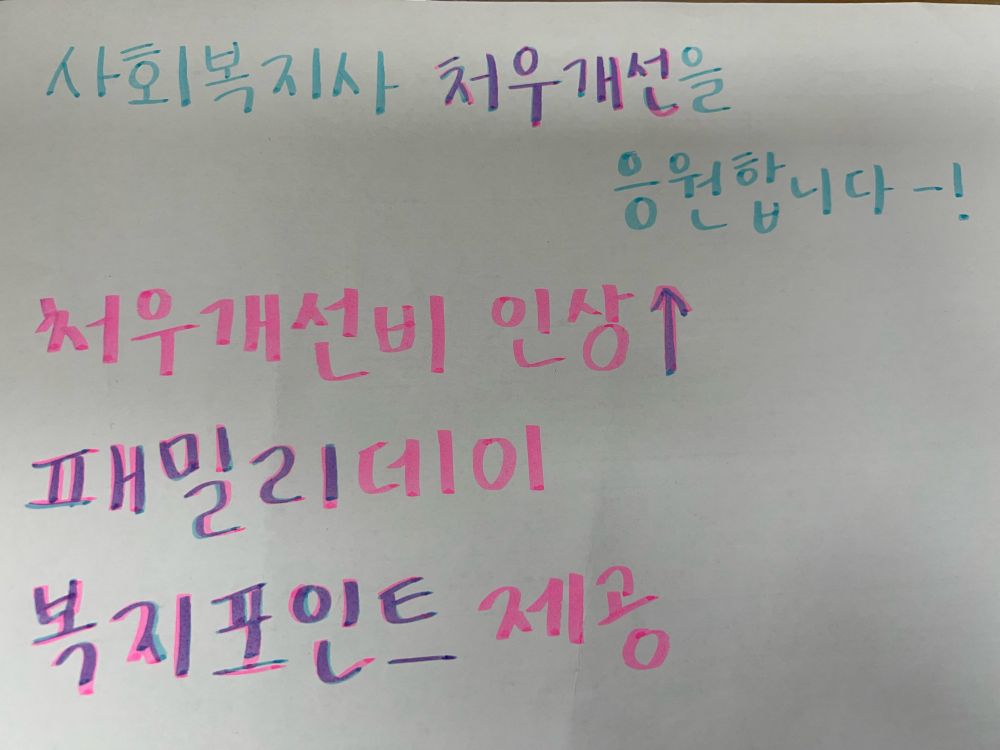 사회복지사 처우개선을
응원합니다-!
처우개선비 인상↑
패밀리데이
복지포인트 제공